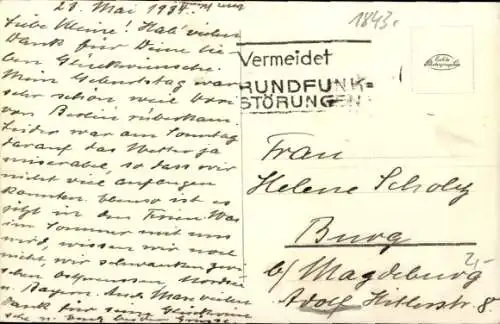 21. Mai 1934.
Liebe Kleine! Hab vielen
Dank für Deine lie-
ben Glückwünsche.
Mein Geburtstag war
sehr schön, weil
von Berlin rüberkam.
Leider war am Sonntag
darauf das Wetter ja
miserabel, so dass wir
nicht viel anfangen
konnten. Ebenso ist es
jetzt in den Ferien. Was
im Sommer mit uns
wird, wissen wir noch
nicht, wir schwanken zwi-
schen Ostpreussen, Nordsee
u. Bayern. Auch Man vielen
Dank für
1843
Vermeidet
RUNDFUNK=
STÖRUNGEN
Echte
Photographie
Frau
Helene Scholz
Burg
b/ Magdeburg
Adolf Hitlerstr. 8
2,-